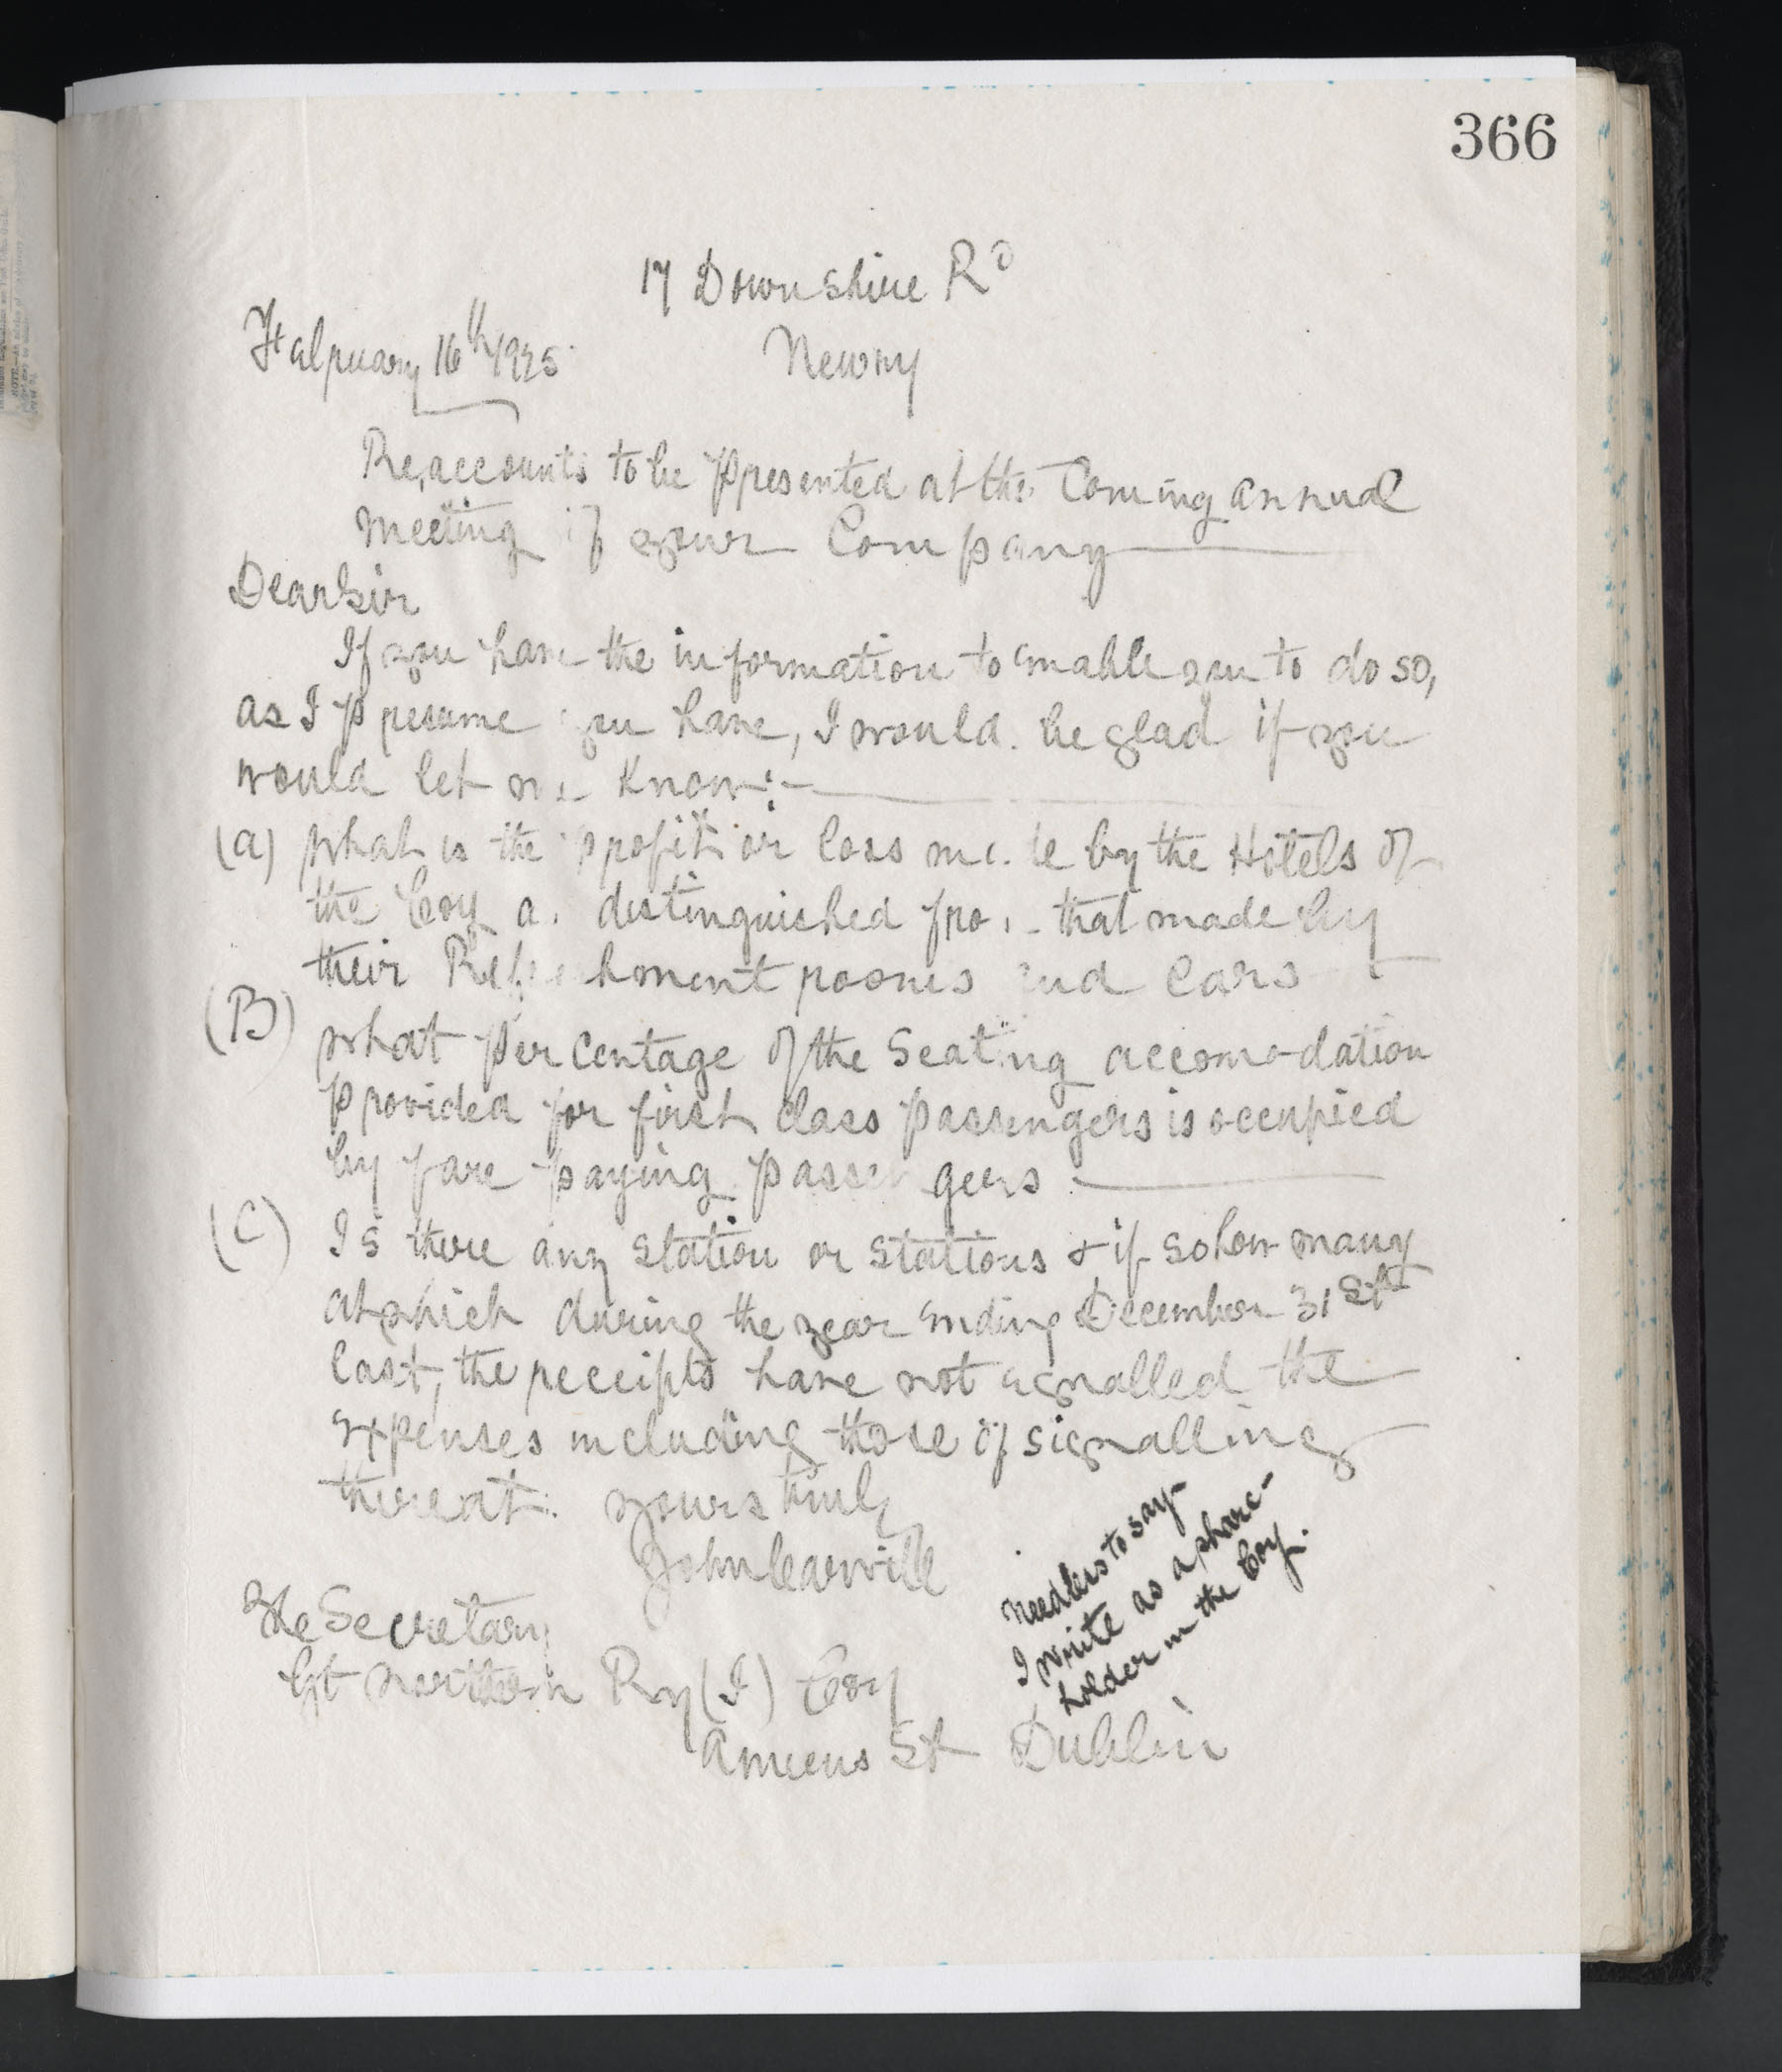 366
17 Downshire Rd
February 16th 1925
Newry
Re, accounts to be presented at the Coming annual
meeting of your Company
Dear Sir
If you have the information to enable you to do so,
as I presume you have, I would be glad if you
would let me know:-
(a) What is the profit or loss made by the Hotels of
the Coy as distinguished from that made by
their Refreshment rooms and Cars
(B) What per centage of the Seating accomodation
provided for first class passengers is occupied
by fare paying passengers
(C) Is there any station or stations & if so how many
at which during the year ending December 31st
last, the receipts have not equalled the
expenses including those of signalling
thereat. Yours truly
John
Needless to say
I write as a share-
holder in the Coy.
The Secretary
Gt Northern Ry (I) Coy
Amiens St Dublin